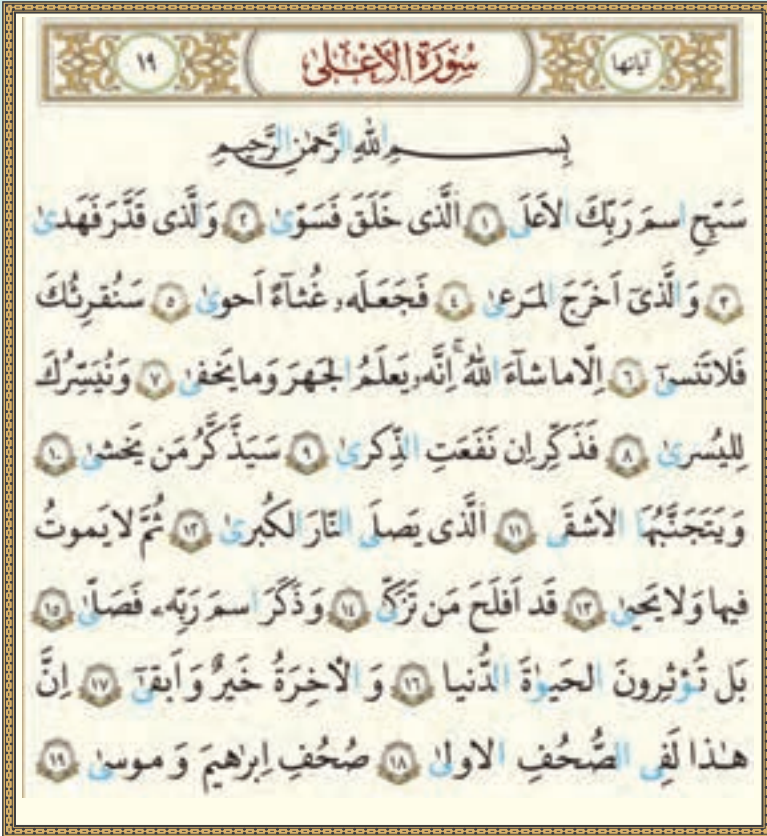 آیاتها سُورَةُ الأَعْلىٰ ١٩
بِسمِ اللهِ الرَّحمٰنِ الرَّحیمِ
سَبِّحِ اسمَ رَبِّكَ الاَعلَى ﴿١﴾ اَلَّذى خَلَقَ فَسَوّىٰ ﴿٢﴾ وَ الَّذى قَدَّرَ فَهَدىٰ
﴿٣﴾ وَ الَّذىٓ اَخرَجَ المَرعىٰ ﴿٤﴾ فَجَعَلَه غُثآءً اَحوىٰ ﴿٥﴾ سَنُقرِئُكَ
فَلا تَنسىٰٓ ﴿٦﴾ اِلّا ما شآءَ اللهُ ۚ اِنَّه یَعلَمُ الجَهرَ وَ ما یَخفىٰ ﴿٧﴾ وَ نُیَسِّرُكَ
لِلیُسرىٰ ﴿٨﴾ فَذَكِّر اِن نَفَعَتِ الذِّكرىٰ ﴿٩﴾ سَیَذَّكَّرُ مَن یَخشىٰ ﴿١٠﴾
وَ یَتَجَنَّبُهَا الاَشقَى ﴿١١﴾ اَلَّذى یَصلَى النّارَ الكُبرىٰ ﴿١٢﴾ ثُمَّ لا یَموتُ
فیها وَ لا یَحیىٰ ﴿١٣﴾ قَد اَفلَحَ مَن تَزَكّىٰ ﴿١٤﴾ وَ ذَكَرَ اسمَ رَبِّه فَصَلّىٰ ﴿١٥﴾
بَل تُؤثِرونَ الحَیوٰةَ الدُّنیا ﴿١٦﴾ وَ الاٰخِرَةُ خَیرٌ وَ اَبقىٰٓ ﴿١٧﴾ اِنَّ
هٰذا لَفِى الصُّحُفِ الاولىٰ ﴿١٨﴾ صُحُفِ اِبرٰهیمَ وَ موسىٰ ﴿١٩﴾